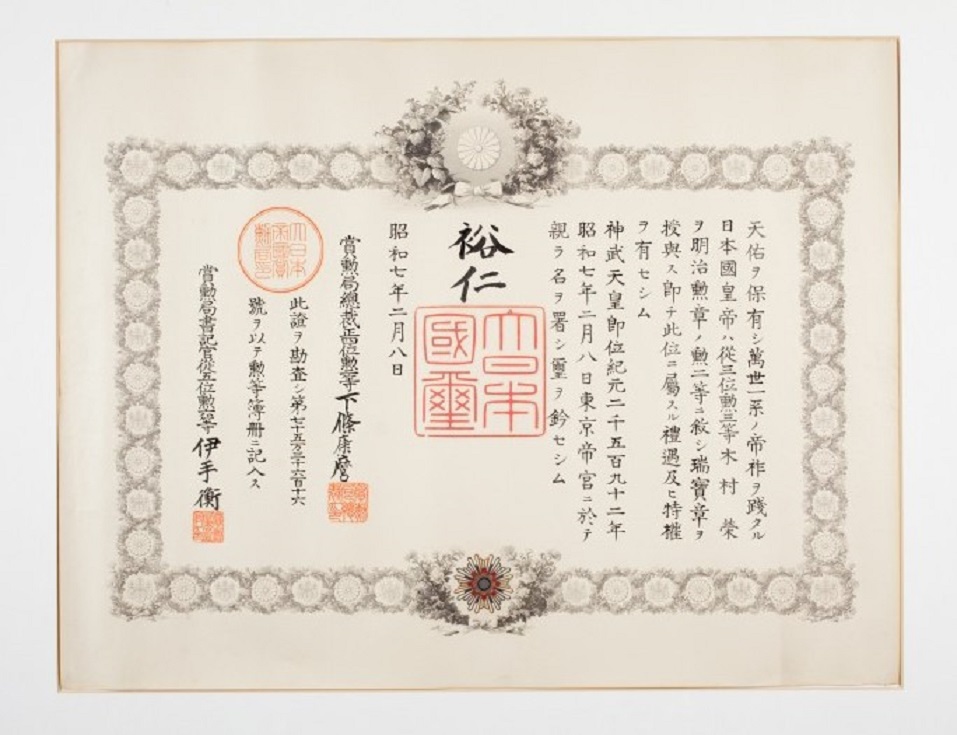 天佑ヲ保有シ萬世一系ノ帝祚ヲ踐タル
日本國皇帝ハ從三位勲三等木村榮
ヲ明治勲章ノ勲二等ニ敘シ瑞寶章ヲ
授與ス即チ此位ニ屬スル禮遇及ヒ特權
ヲ有セシム
神武天皇即位紀元二千五百九十二年
昭和七年二月八日東京帝宮ニ於テ
親ラ名ヲ署シ璽ヲ鈐セシム
裕仁
大日本
國璽
昭和七年二月八日
賞勲局總裁正三位勲一等下條康麿
此證ヲ勘査シ第七十五万三千六百十六
號ヲ以テ勲等簿冊ニ記入ス
大日本
帝國賞
勲局印
賞勲局書記官從五位勲五等伊手衡